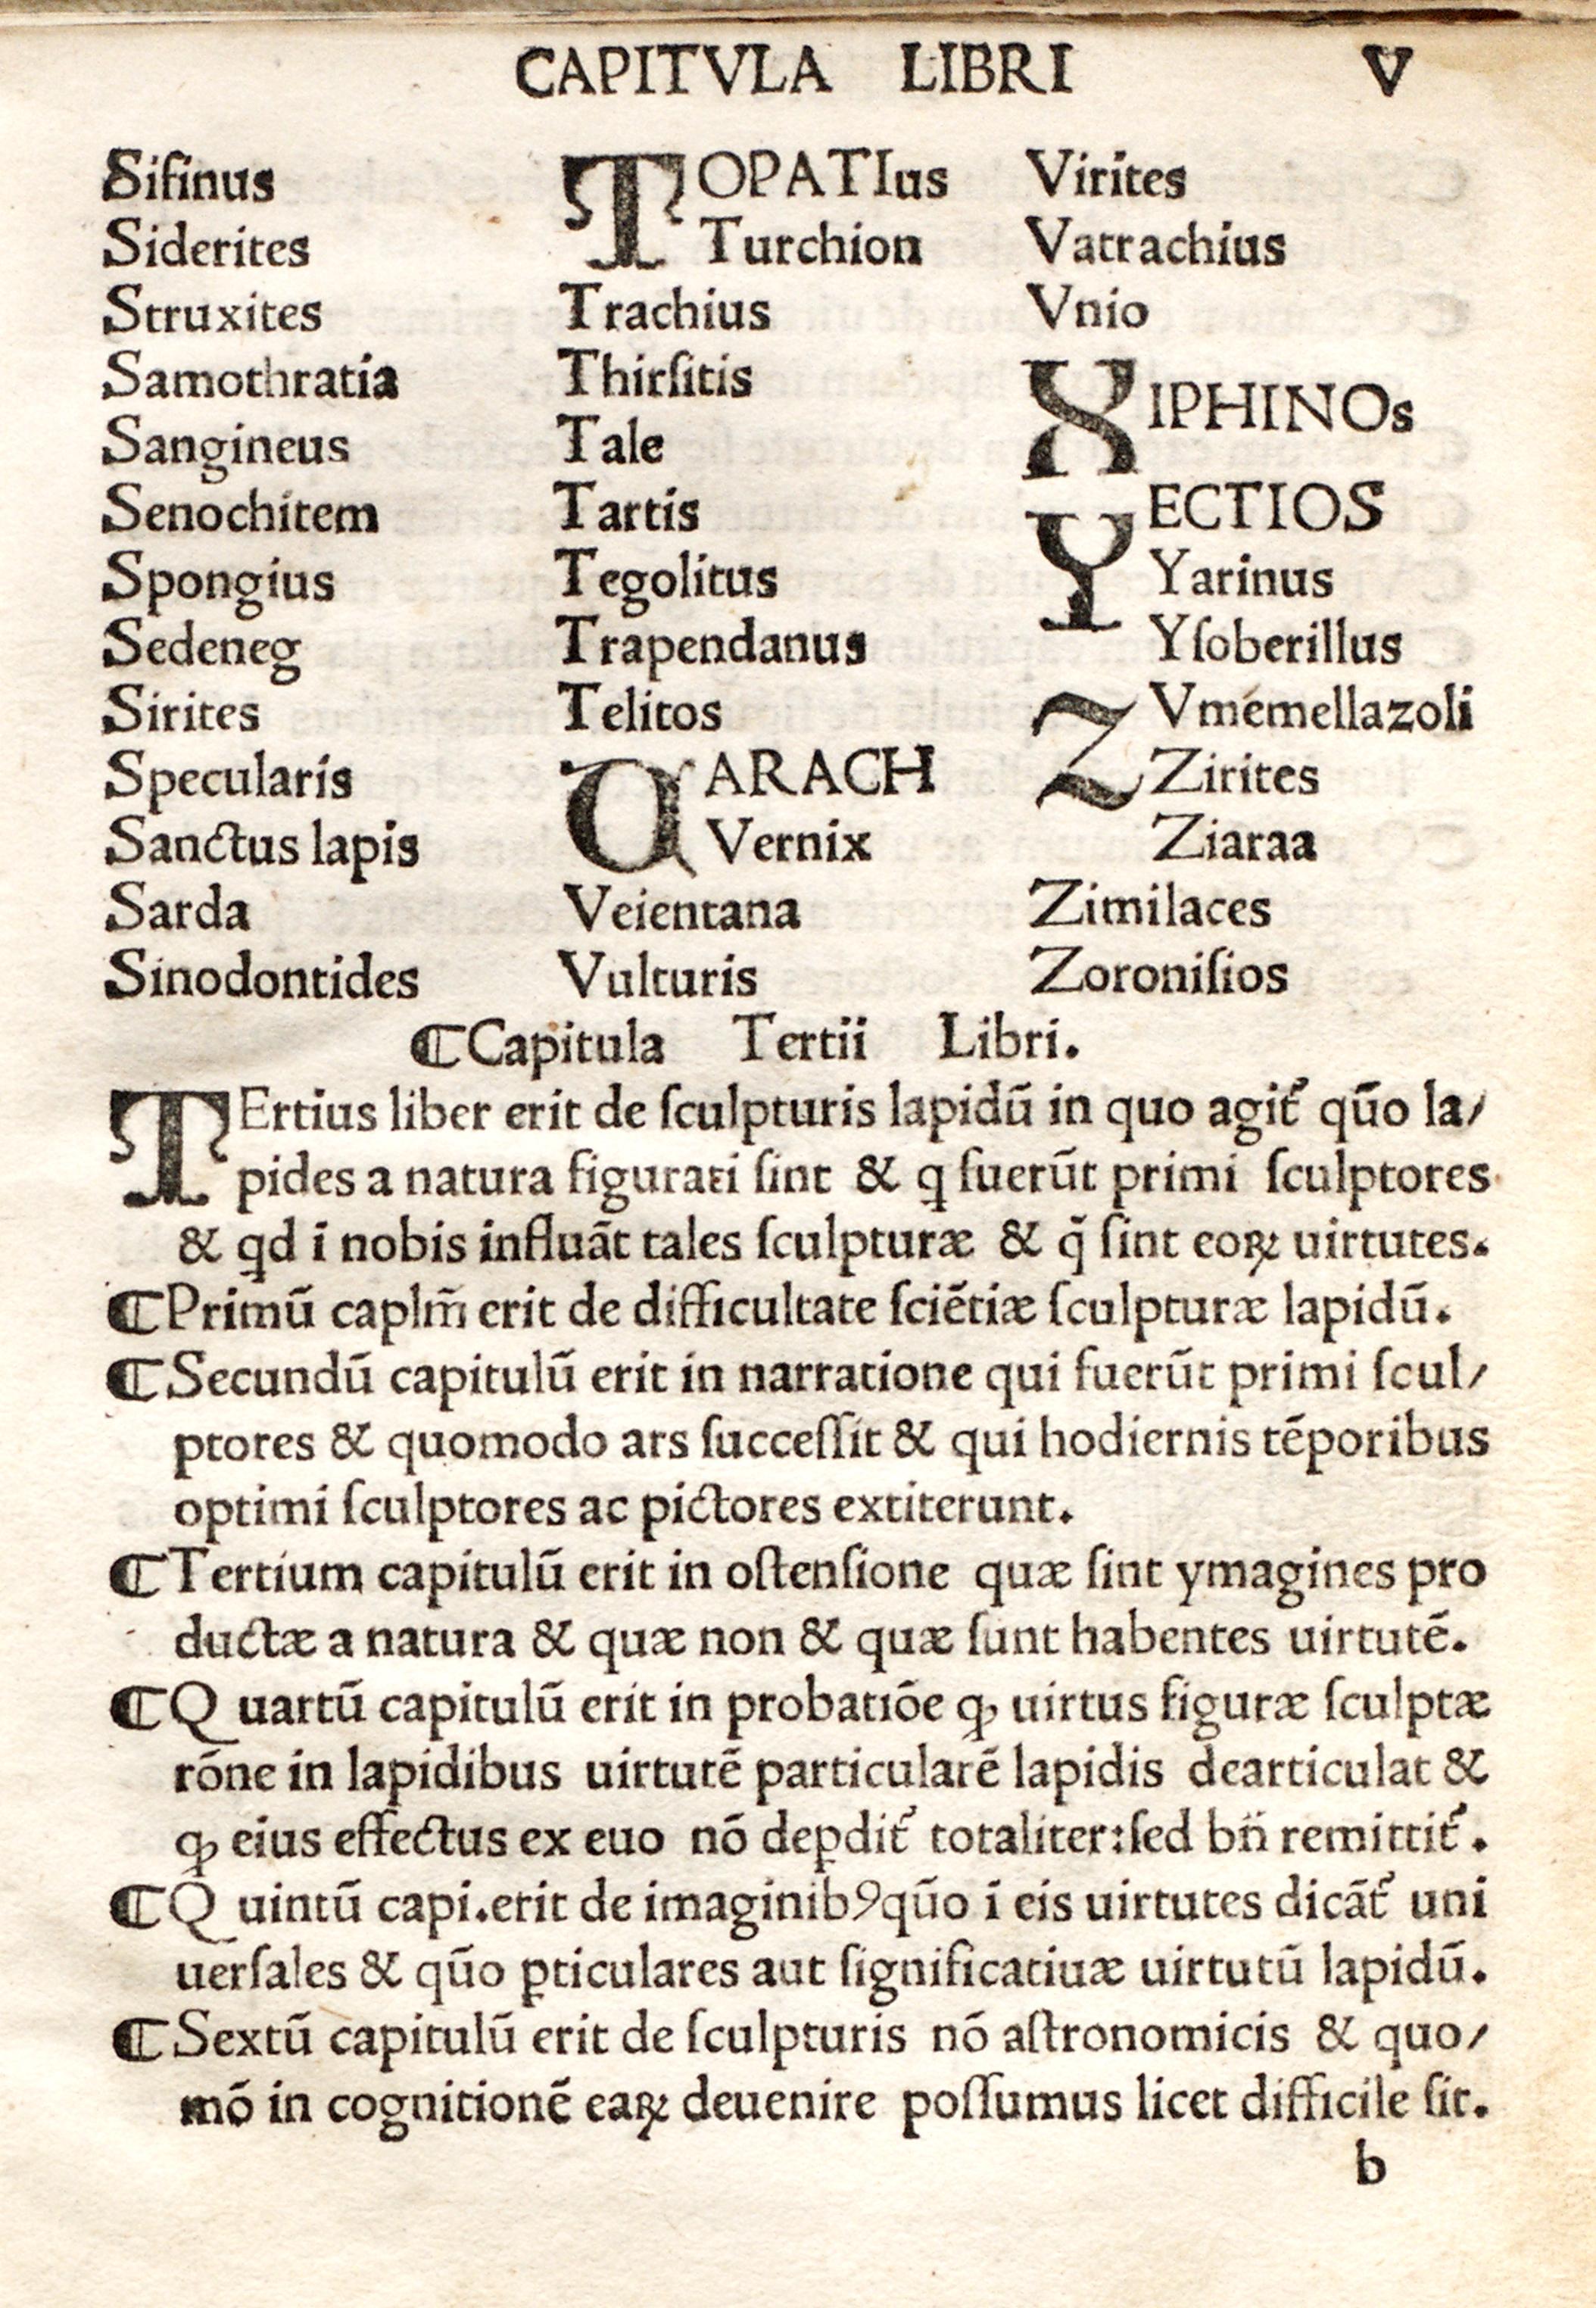 CAPITVLA LIBRI V
Sifinus
Siderites
Struxites
Samothratia
Sangineus
Senochitem
Spongius
Sedeneg
Sirites
Specularis
Sanctus lapis
Sarda
Sinodontides
TOPATIus
Turchion
Trachius
Thirſitis
Tale
Tartis
Tegolitus
Trapendanus
Telitos
VARACH
Vernix
Veientana
Vulturis
Virites
Vatrachius
Vnio
XIPHINOs
YECTIOS
Yarinus
Yſoberillus
ZVmémellazoli
Zirites
Ziaraa
Zimilaces
Zoroniſios
⸿Capitula Tertii Libri.
TErtius liber erit de ſculpturis lapidū in quo agit᷑ qūo la/
pides a natura figurati ſint & ꝗ fuerūt primi ſculptores
& ꝗd ī nobis influāt tales ſculpturæ & q̄ ſint eoꝝ uirtutes.
⸿Primū caplm̄ erit de difficultate ſciētiæ ſculpturæ lapidū.
⸿Secundū capitulū erit in narratione qui fuerūt primi ſcul/
ptores & quomodo ars ſucceſſit & qui hodiernis tēporibus
optimi ſculptores ac pictores extiterunt.
⸿Tertium capitulū erit in oſtenſione quæ ſint ymagines pro
ductæ a natura & quæ non & quæ ſunt habentes uirtutē.
⸿Q uartū capitulū erit in probatiōe ꝙ uirtus figuræ ſculptæ
rōne in lapidibus uirtutē particularē lapidis dearticulat &
ꝙ eius effectus ex euo nō deꝑdit᷑ totaliter:ſed bn̄ remittit᷑.
⸿Q uintū capi.erit de imaginibꝰ qūo ī eis uirtutes dicāt᷑ uni
uerſales & qūo ꝑticulares aut ſignificatiuæ uirtutū lapidū.
⸿Sextū capitulū erit de ſculpturis nō aſtronomicis & quo/
mō in cognitionē eaꝝ deuenire poſſumus licet difficile ſit.
b